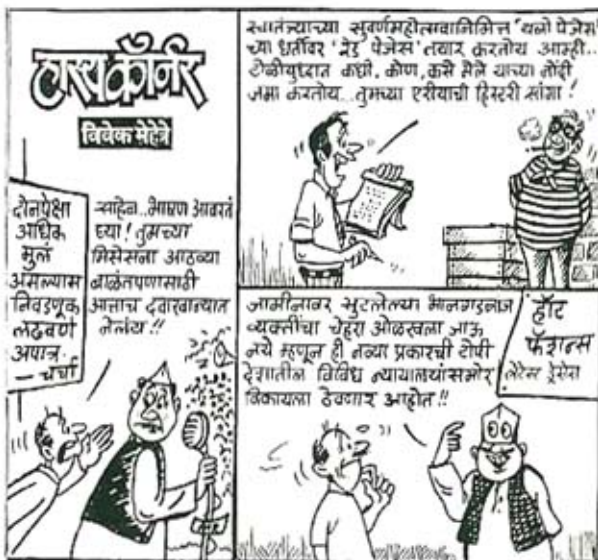 हास्यकॉर्नर
विवेक मेहेत्रे
दोनपेक्षा
अधिक
मुलं
असल्यास
निवडणूक
लढवणे
अपात्र.
— चर्चा
साहेब...भाषण आवरतं
घ्या! तुमच्या
मिसेसना आठव्या
बाळंतपणासाठी
आत्ताच दवाखान्यात
नेलंय!!
स्वातंत्र्याच्या सुवर्णमहोत्सवानिमित्त 'यलो पेजेस'
च्या धर्तीवर 'रेड पेजेस' तयार करतोय आम्ही..
टोळीयुध्दात कधी, कोण, कसे मेले याच्या नोंदी
जमा करतोय...तुमच्या एरीयाची हिस्टरी सांगा!
जामीनावर सुटलेल्या भानगडबाज
व्यक्तींचा चेहरा ओळखला जाऊ
नये म्हणून ही नव्या प्रकारची टोपी
देशातील विविध न्यायालयांसमोर
विकायला ठेवणार आहोत!!
हॉट
फॅशन्स
लेटेस्ट ड्रेसेस